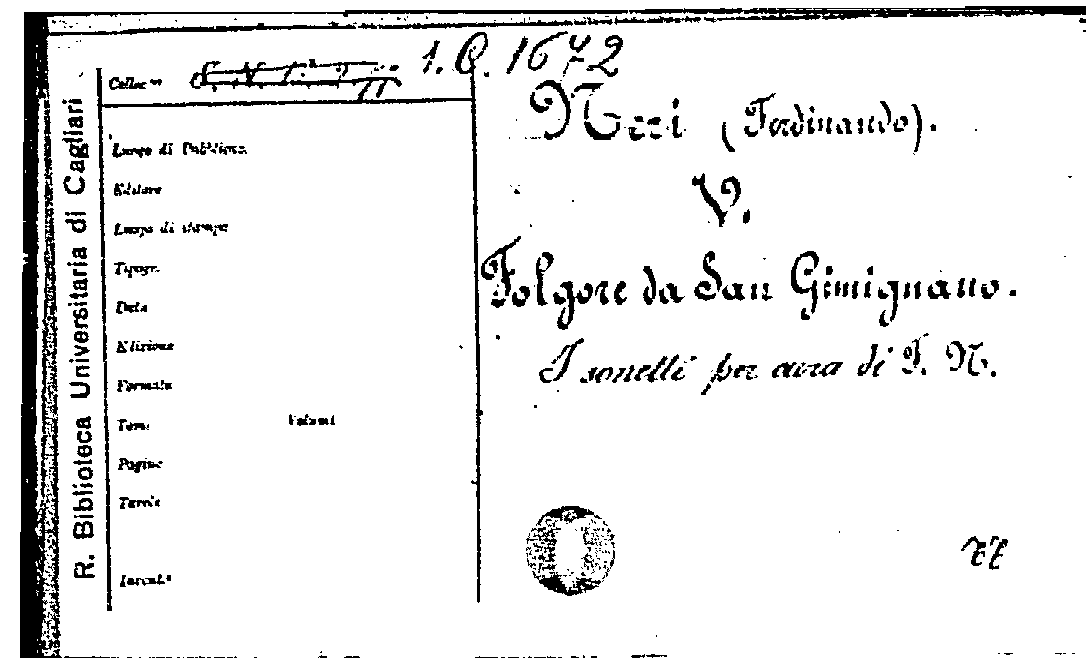 R. Biblioteca Universitaria di Cagliari
Collocaz.
1.C.1672
Luogo di Pubblicaz.
Editore
Luogo di stampa
Tipogr.
Data
Edizione
Formato
Tomi Volumi
Pagine
Tavole
Neri (Ferdinando).
V.
Folgore da San Gimignano.
I sonetti per cura di F. N.